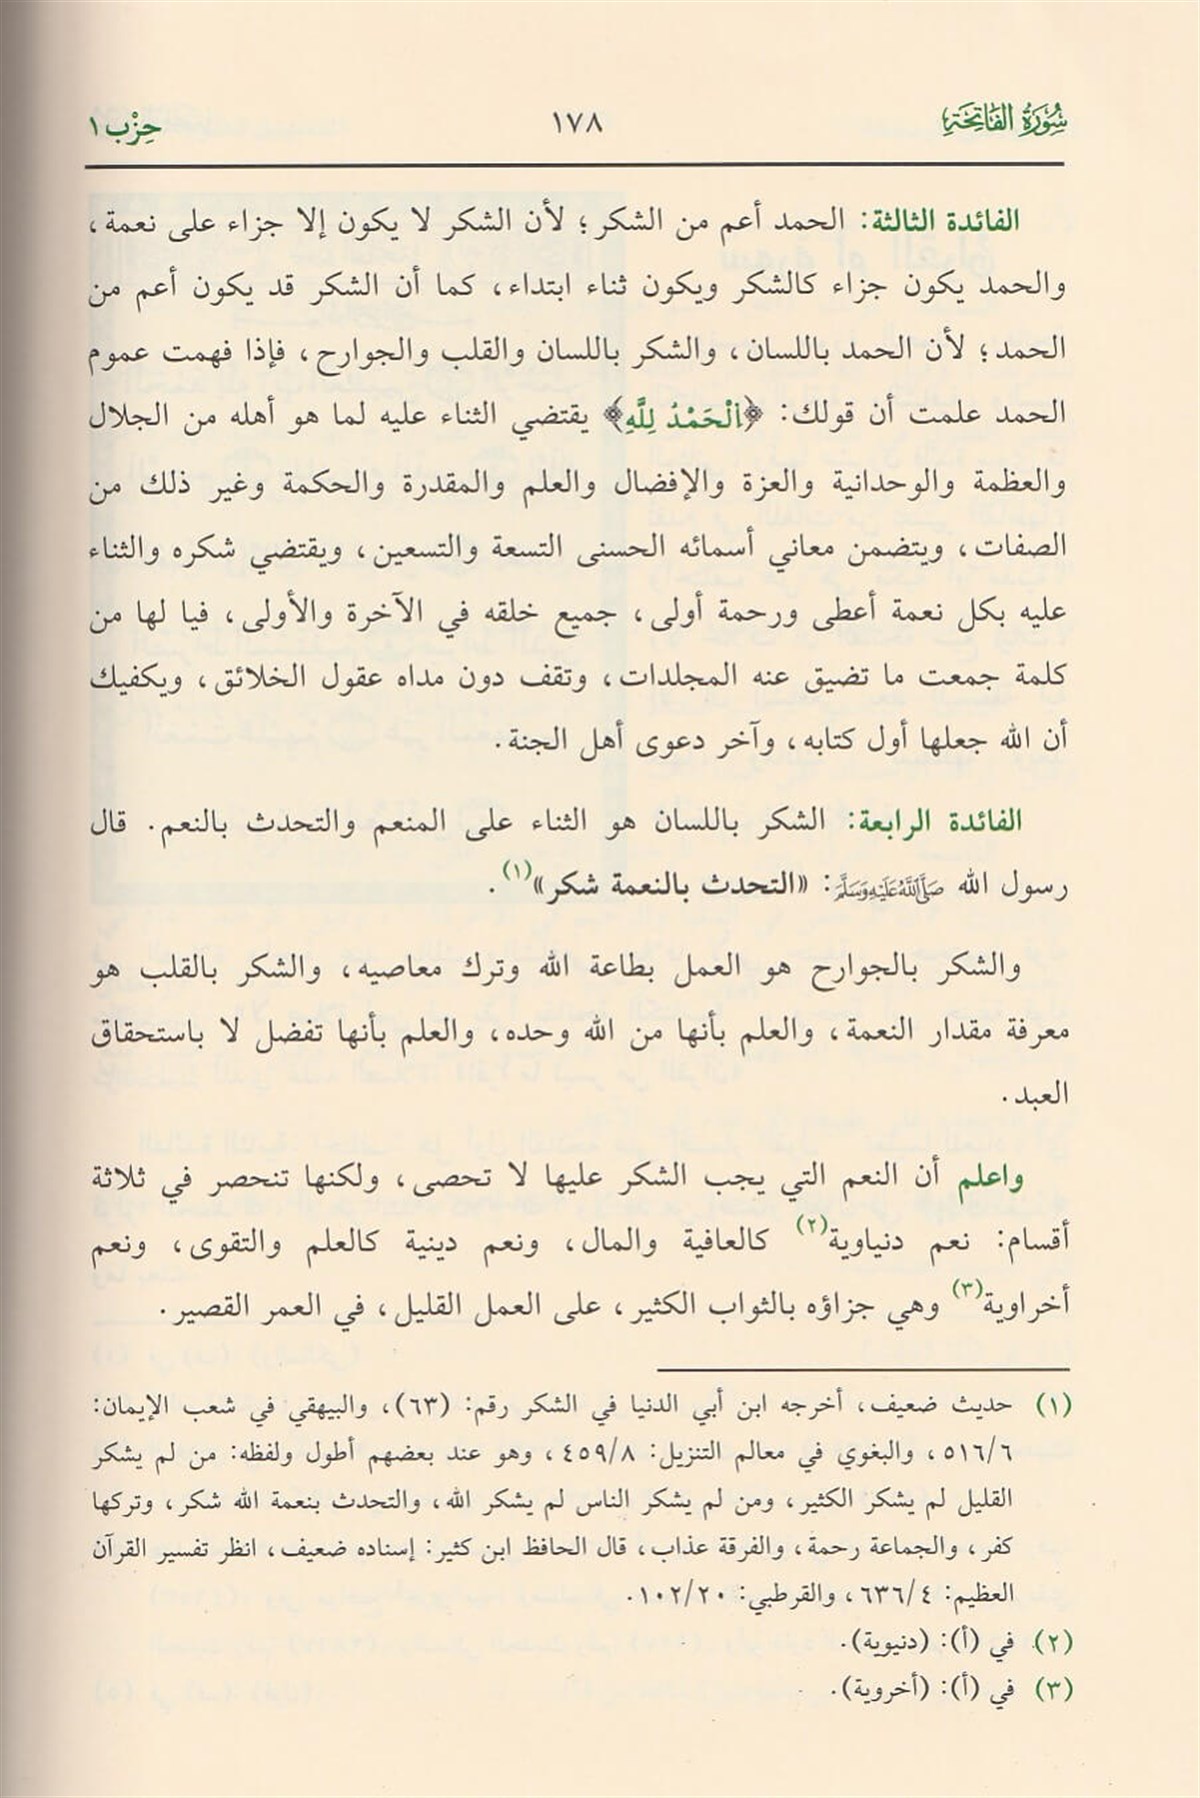 سُورَةُ الفَاتِحَةِ ١٧٨ حِزْب ١
الفائدة الثالثة: الحمد أعم من الشكر؛ لأن الشكر لا يكون إلا جزاء على نعمة،
والحمد يكون جزاء كالشكر ويكون ثناء ابتداء، كما أن الشكر قد يكون أعم من
الحمد؛ لأن الحمد باللسان، والشكر باللسان والقلب والجوارح، فإذا فهمت عموم
الحمد علمت أن قولك: ﴿اَلْحَمْدُ لِلَّهِ﴾ يقتضي الثناء عليه لما هو أهله من الجلال
والعظمة والوحدانية والعزة والإفضال والعلم والمقدرة والحكمة وغير ذلك من
الصفات، ويتضمن معاني أسمائه الحسنى التسعة والتسعين، ويقتضي شكره والثناء
عليه بكل نعمة أعطى ورحمة أولى، جميع خلقه في الآخرة والأولى، فيا لها من
كلمة جمعت ما تضيق عنه المجلدات، وتقف دون مداه عقول الخلائق، ويكفيك
أن الله جعلها أول كتابه، وآخر دعوى أهل الجنة.
الفائدة الرابعة: الشكر باللسان هو الثناء على المنعم والتحدث بالنعم. قال
رسول الله ﷺ: «التحدث بالنعمة شكر»(١).
والشكر بالجوارح هو العمل بطاعة الله وترك معاصيه، والشكر بالقلب هو
معرفة مقدار النعمة، والعلم بأنها من الله وحده، والعلم بأنها تفضل لا باستحقاق
العبد.
واعلم أن النعم التي يجب الشكر عليها لا تحصى، ولكنها تنحصر في ثلاثة
أقسام: نعم دنياوية(٢) كالعافية والمال، ونعم دينية كالعلم والتقوى، ونعم
أخراوية(٣) وهي جزاؤه بالثواب الكثير، على العمل القليل، في العمر القصير.
(١) حديث ضعيف، أخرجه ابن أبي الدنيا في الشكر رقم: (٦٣)، والبيهقي في شعب الإيمان:
٥١٦/٦، والبغوي في معالم التنزيل: ٤٥٩/٨، وهو عند بعضهم أطول ولفظه: من لم يشكر
القليل لم يشكر الكثير، ومن لم يشكر الناس لم يشكر الله، والتحدث بنعمة الله شكر، وتركها
كفر، والجماعة رحمة، والفرقة عذاب، قال الحافظ ابن كثير: إسناده ضعيف، انظر تفسير القرآن
العظيم: ٦٣٦/٤، والقرطبي: ١٠٢/٢٠.
(٢) في (أ): (دنيوية).
(٣) في (أ): (أخروية).